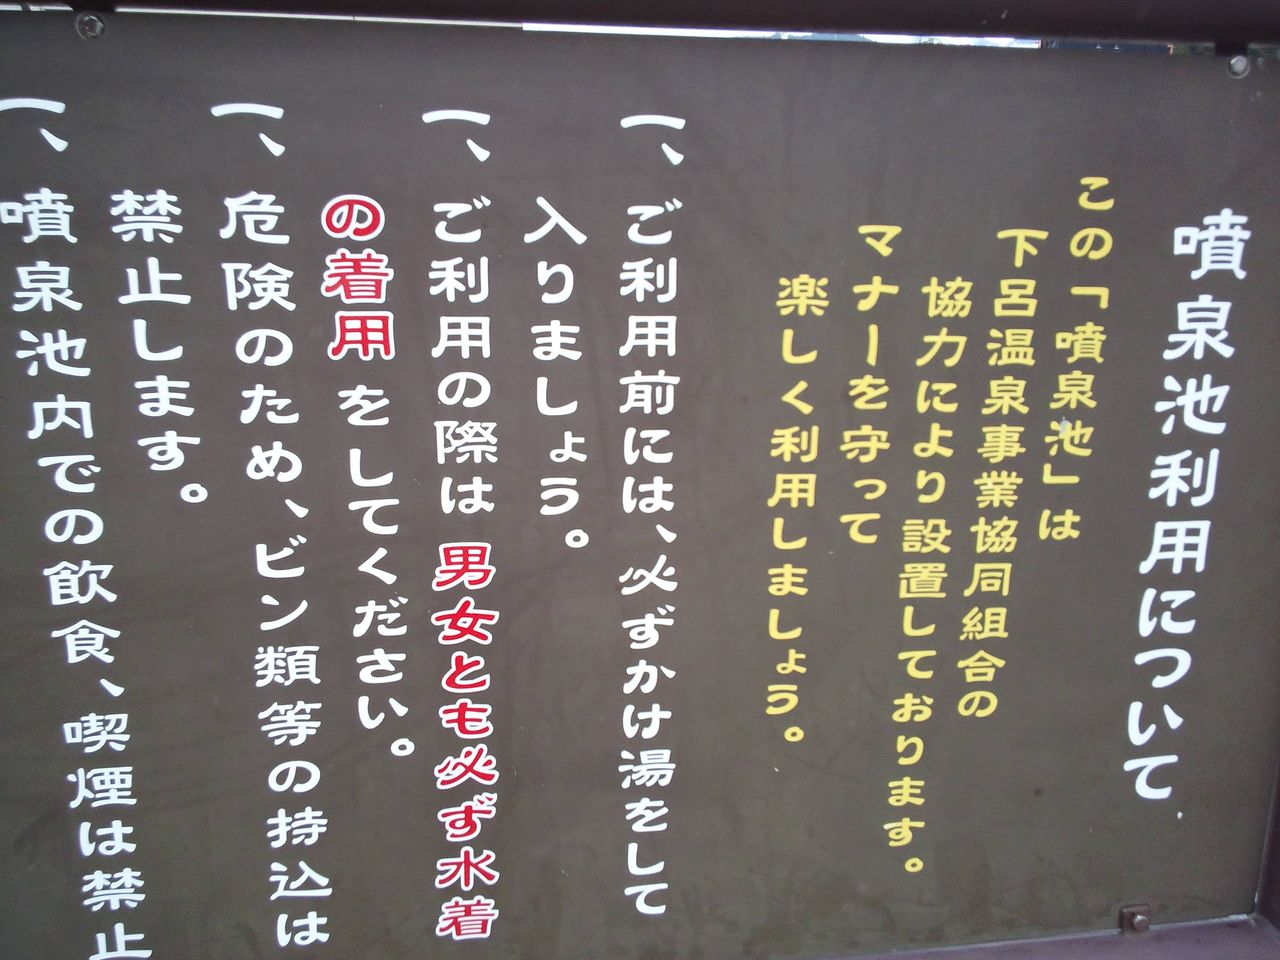 噴泉池利用について
この「噴泉池」は
下呂温泉事業協同組合の
協力により設置しております。
マナーを守って
楽しく利用しましょう。
一、ご利用前には、必ずかけ湯をして
入りましょう。
一、ご利用の際は男女とも必ず水着
の着用をしてください。
一、危険のため、ビン類等の持込は
禁止します。
一、噴泉池内での飲食、喫煙は禁止